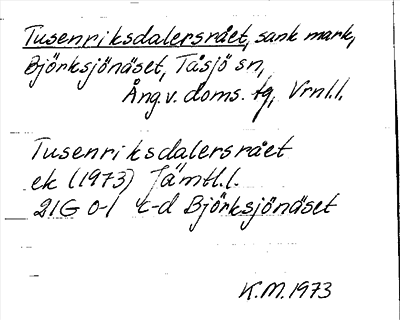 Tusenriksdalersrået, sank mark,
Björksjönäset, Tåsjö sn,
Ång.v. doms. tg, Vrnl.l.
Tusenriksdalersrået
ek (1973) Jämtl.l.
21G 0-1 c-d Björksjönäset
K.M. 1973